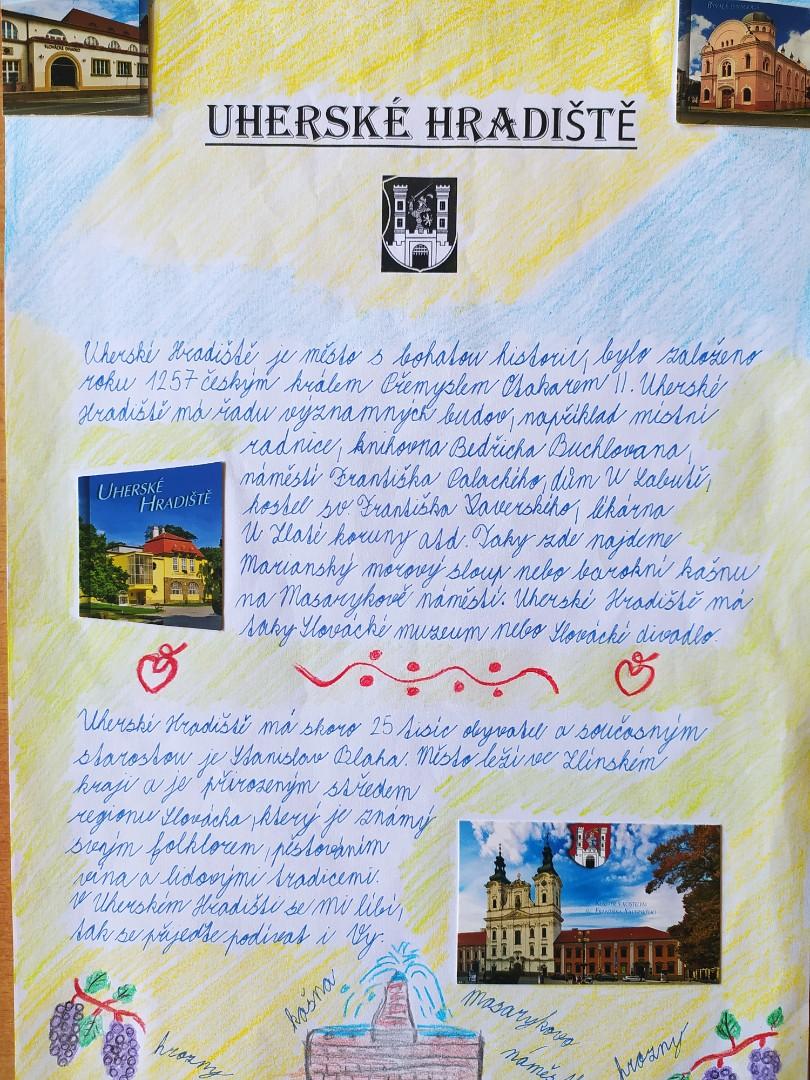 SLOVÁCKÉ DIVADLO
BÝVALÁ SYNAGOGA
UHERSKÉ HRADIŠTĚ
Uherské Hradiště je město s bohatou historií, bylo založeno
roku 1257 českým králem Přemyslem Otakarem II. Uherské
Hradiště má řadu významných budov, například místní
radnice, knihovna Bedřicha Buchlovana,
náměstí Františka Palackého, dům U Labutě,
kostel sv Františka Xaverského, lékárna
U Zlaté koruny atd. Taky zde najdeme
Marianský morový sloup nebo barokní kašnu
na Masarykově náměstí. Uherské Hradiště má
taky Slovácké muzeum nebo Slovácké divadlo.
UHERSKÉ
HRADIŠTĚ
Uherské Hradiště má skoro 25 tisíc obyvatel a současným
starostou je Stanislav Blaha. Město leží ve Zlínském
kraji a je přirozeným středem
regionu Slovácka, který je známý
svým folklorem, pěstováním
vína a lidovými tradicemi.
V Uherském Hradišti se mi líbí,
tak se přijeďte podívat i Vy.
hrozny
kašna
Masarykovo
hrozny